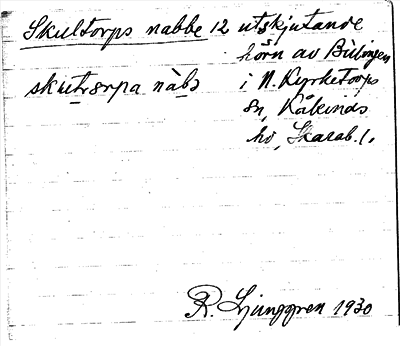 Skultorps nabbe 12 utskjutande
hörn av Billingen
skutərpa nàbɔ i N. Kyrketorps
sn, Kåkinds
hd, Skarab. l.
R. Ljunggren 1930